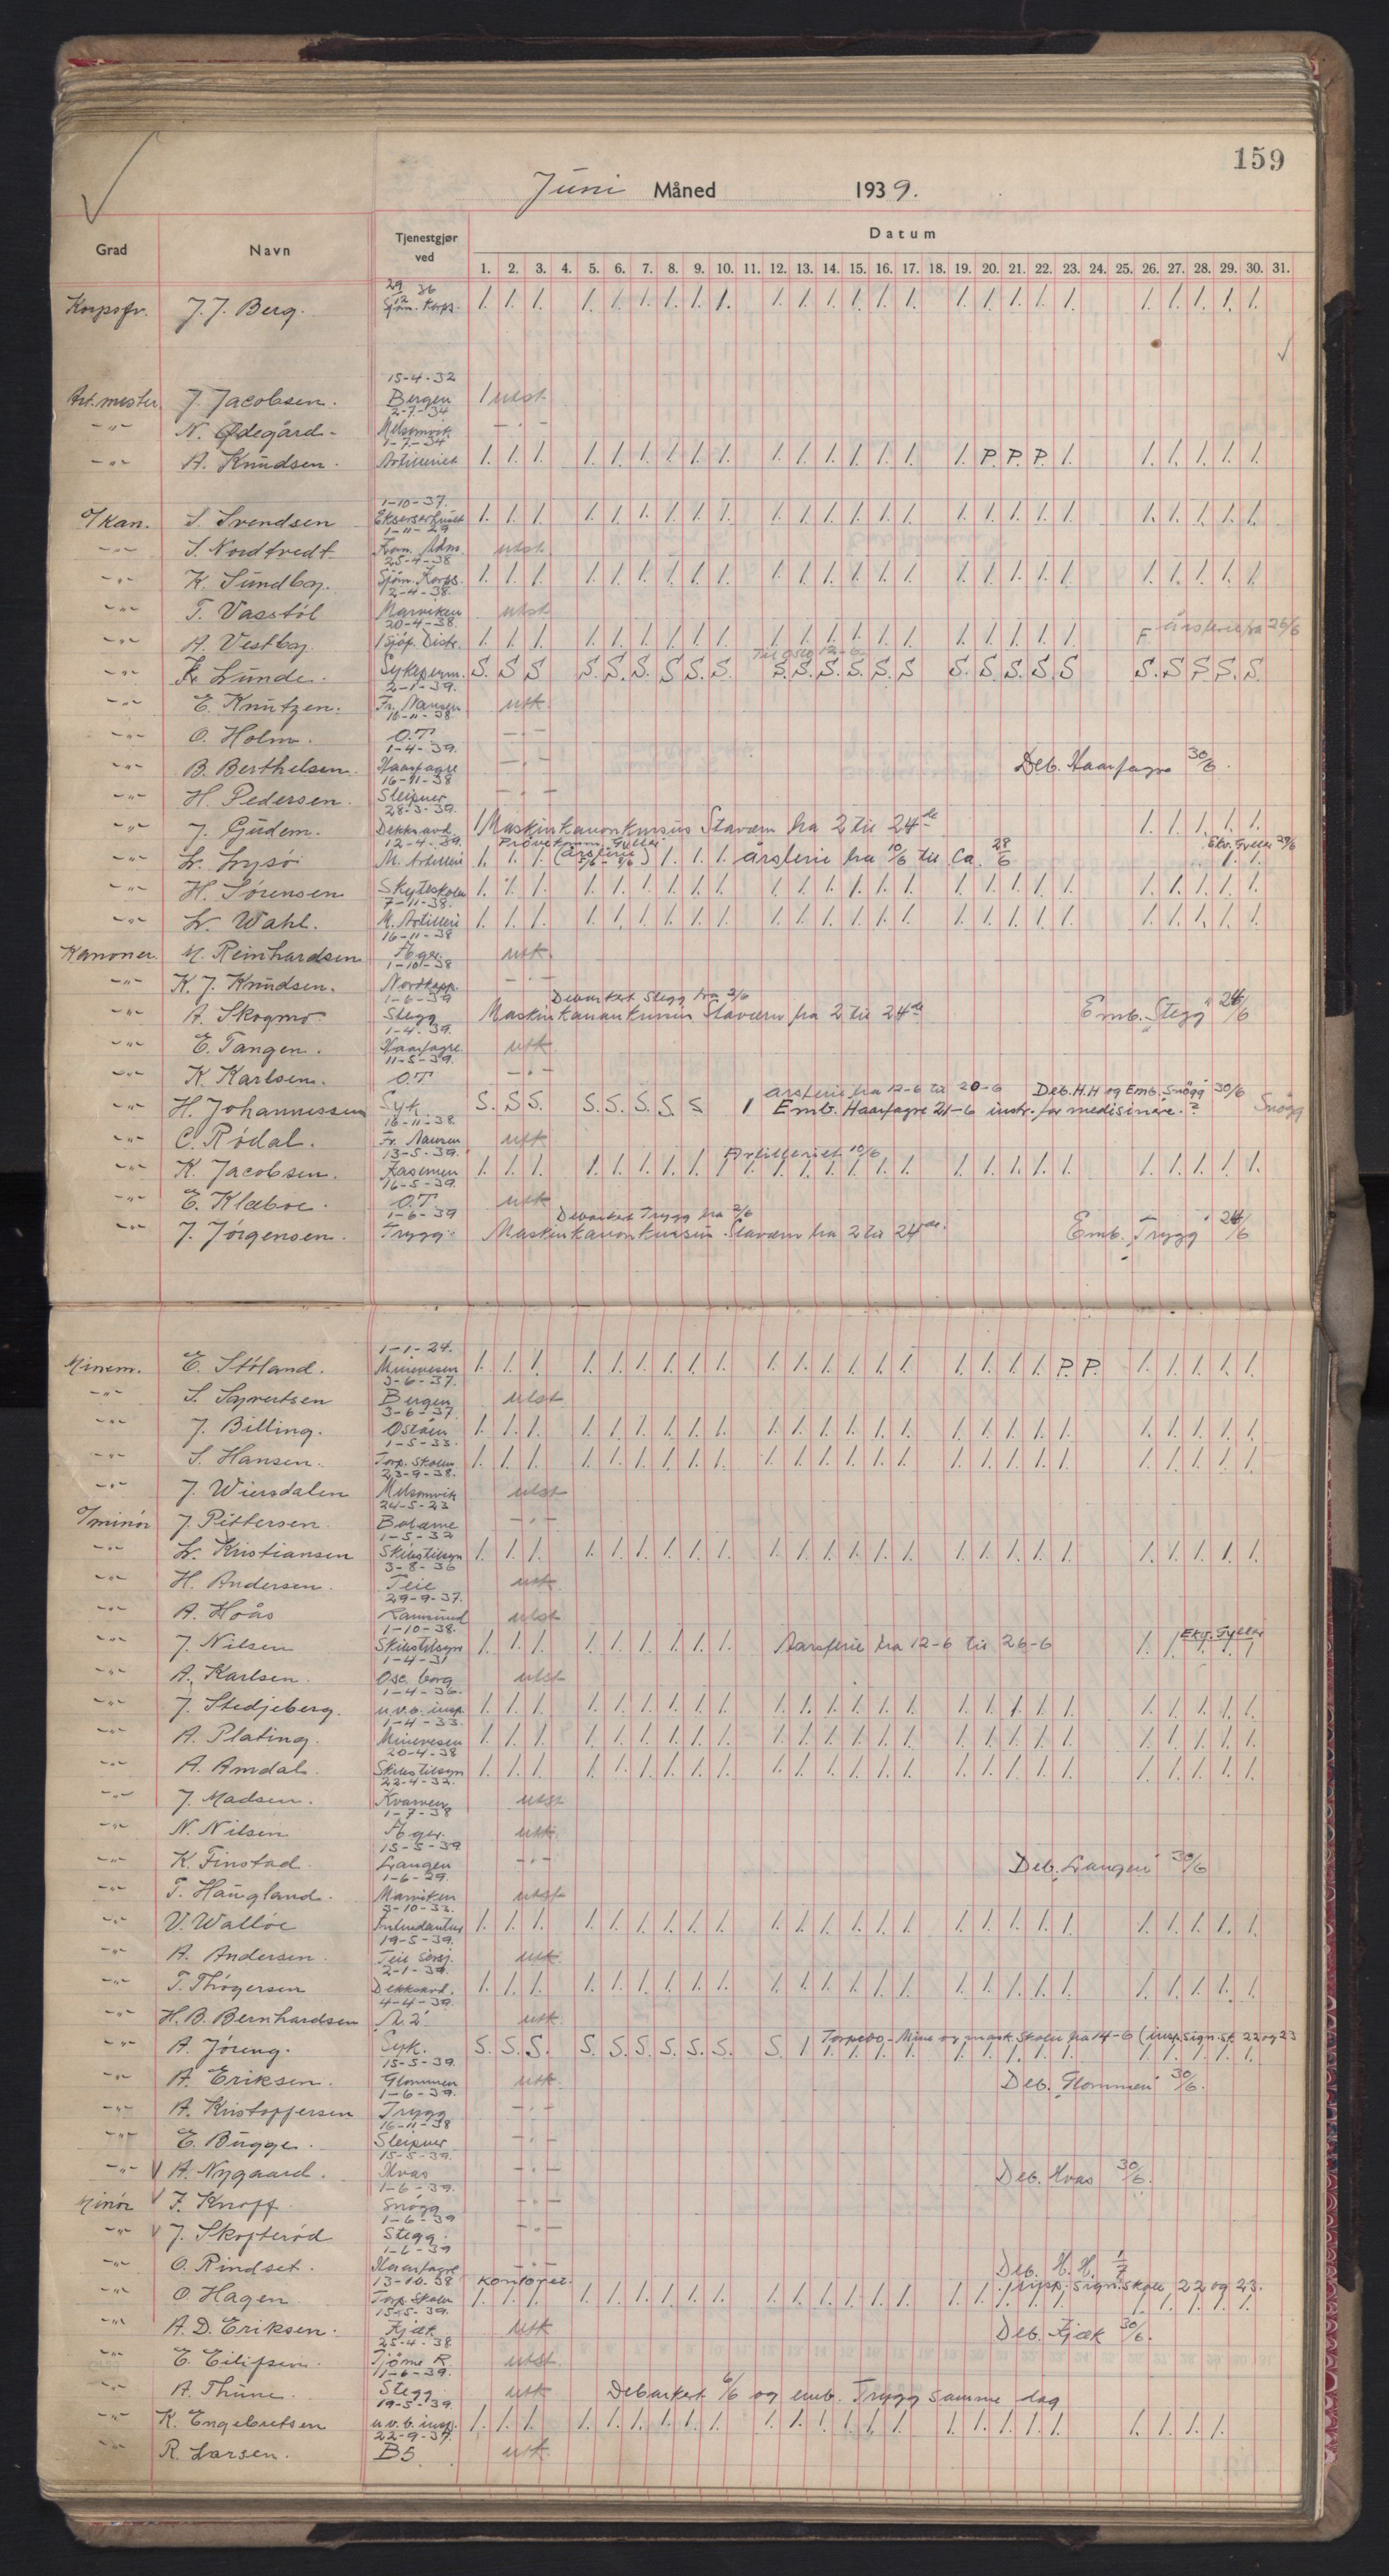 159
Juni Måned 1939.
Grad Navn Tjenestgjør ved Datum
1. 2. 3. 4. 5. 6. 7. 8. 9. 10. 11. 12. 13. 14. 15. 16. 17. 18. 19. 20. 21. 22. 23. 24. 25. 26. 27. 28. 29. 30. 31.
29/12 36
Korpsfr. J. J. Berg. Sjøm. Korps. 1. 1. 1. 1. 1. 1. 1. 1. 1. 1. 1. 1. 1. 1. 1. 1. 1. 1. 1. 1. 1. 1. 1. 1. 1. 1.
15-4-32
Art. mester J. Jacobsen. Bergen 1 utst.
2-7-34
-"- N. Ødegård- Melsomvik -"-
1-7-34
-"- A. Knudsen. Artilleriet 1. 1. 1. 1. 1. 1. 1. 1. 1. 1. 1. 1. 1. 1. 1. 1. P. P. P. 1. 1. 1. 1. 1. 1.
1-10-37.
O/kan. S. Svendsen Ekserserhuset 1. 1. 1. 1. 1. 1. 1. 1. 1. 1. 1. 1. 1. 1. 1. 1. 1. 1. 1. 1. 1. 1. 1. 1. 1.
1-11-29
-"- S. Nordtvedt Kom. Adm. utst.
25-4-38
-"- K. Sundby. Sjøm. Korps. 1. 1. 1. 1. 1. 1. 1. 1. 1. 1. 1. 1. 1. 1. 1. 1. 1. 1. 1. 1. 1. 1. 1. 1. 1.
2-4-38.
-"- T. Vasstøl Marviken utst
20-4-38.
-"- A. Vestby. 1 Sjøf. Distr. 1. 1. 1. 1. 1. 1. 1. 1. 1. 1. 1. 1. 1. 1. 1. 1. 1. 1. 1. 1. F Årsferie fra 26/6
Til Oslo 12-6
-"- Fr. Lunde. Sykeperm. S. S S S. S. S. S S. S. S. S. S. S. S. S S. S. S. S. S S. S S S. S.
2-1-39.
-"- E. Knutzen. Fr. Nansen utk.
16-11-38
-"- O. Holm. O.T -"-
1-4-39.
-"- B. Berthelsen. Haarfagre -"- Deb. Haarfagre 30/6.
16-11-38
-"- H. Pedersen. Sleipner -"-
28-3-39.
-"- J. Gudem. Dekksavd. 1 Maskinkanonkursus Stavern fra 2 til 24de 1. 1. 1. 1. 1.
12-4-39. Ekv. Fyller 29/6
-"- L. Lysøi M. Artilleri 1. 1. 1. (årsferie 5/6 - 7/6) 1. 1. 1. årsferie fra 10/6 til Ca. 28/6 1. 1.
-"- H. Sørensen Skyteskolen 1. 1. 1. 1. 1. 1. 1. 1. 1. 1. 1. 1. 1. 1. 1. 1. 1. 1. 1. 1. 1. 1. 1. 1. 1.
7-11-38.
-"- L. Wahl. M. Artilleri 1. 1. 1. 1. 1. 1. 1. 1. 1. 1. 1. 1. 1. 1. 1. 1. 1. 1. 1. 1. 1. 1. 1. 1. 1.
16-11-38
Kanoner. M. Reinhardsen Æger. utk.
1-10-38
-"- K. J. Knudsen. Nordkapp. -"-
1-6-39 Debarkert Stegg fra 2/6
-"- A. Skogmo Stegg Maskinkanonkursus Stavern fra 2 til 24de Emb. "Stegg" 24/6
1-4-39.
-"- E. Tangen. Haarfagre. utk.
11-5-39.
-"- K. Karlsen. O.T -"-
årsferie fra 12-6 til 20-6 Deb. H.H og Emb. Snøgg 30/6
-"- H. Johannessen Syk. S. S S. S. S. S. S. S 1 Emb. Haarfagre 21-6 instr. for medisinere.? Snøgg
16-11-38.
-"- C. Rødal. Fr. Nansen utk
13-5-39. Artilleriet 10/6
-"- K. Jacobsen. Kasernen 1. 1. 1. 1. 1. 1. 1. 1. 1. 1. 1. 1. 1. 1. 1. 1. 1. 1. 1. 1. 1. 1. 1. 1. 1.
16-5-39.
-"- E. Klæboe. O.T. utk
1-6-39 Debarkert Trygg fra 2/6
-"- J. Jørgensen. Trygg. Maskinkanonkursus Stavern fra 2 til 24de. Emb. "Trygg" 24/6
1-1-24.
Minem. E. Støland. Minevesen 1. 1. 1. 1. 1. 1. 1. 1. 1. 1. 1. 1. 1. 1. 1. 1. 1. 1. 1. P. P. 1. 1. 1. 1. 1.
3-6-37.
-"- S. Syvertsen Bergen utst
3-6-37
-"- J. Billing. Østøen 1. 1. 1. 1. 1. 1. 1. 1. 1. 1. 1. 1. 1. 1. 1. 1. 1. 1. 1. 1. 1. 1. 1. 1. 1.
1-5-33.
-"- S. Hansen. Torp. Skolen 1. 1. 1. 1. 1. 1. 1. 1. 1. 1. 1. 1. 1. 1. 1. 1. 1. 1. 1. 1. 1. 1. 1. 1. 1.
23-9-38.
-"- J. Wiersdalen Melsomvik utst
24-5-23
O/minør J. Pettersen. Bolærne -"-
1-5-32
-"- L. Kristiansen Skibstilsyn 1. 1. 1. 1. 1. 1. 1. 1. 1. 1. 1. 1. 1. 1. 1. 1. 1. 1. 1. 1. 1. 1. 1. 1. 1.
3-8-36
-"- H. Andersen. Teie utk.
29-9-37.
-"- A. Hoås Ramsund utst
1-10-38.
-"- J. Nilsen Skibstilsyn 1. 1. 1. 1. 1. 1. 1. 1. 1. Aarsferie fra 12-6 til 26-6 1. 1. Ekv. Fyller 1. 1. 1.
1-4-31
-"- A. Karlsen. Osc. borg utst
1-4-36.
-"- J. Stedjeberg. u.v.b. insp. 1. 1. 1. 1. 1. 1. 1. 1. 1. 1. 1. 1. 1. 1. 1. 1. 1. 1. 1. 1. 1. 1. 1. 1. 1.
1-4-33.
-"- A. Plating. Minevesen 1. 1. 1. 1. 1. 1. 1. 1. 1. 1. 1. 1. 1. 1. 1. 1. 1. 1. 1. 1. 1. 1. 1. 1. 1.
20-4-38
-"- A. Amdal. Skibstilsyn 1. 1. 1. 1. 1. 1. 1. 1. 1. 1. 1. 1. 1. 1. 1. 1. 1. 1. 1. 1. 1. 1. 1. 1. 1.
22-4-32.
-"- J. Madsen. Kvarven utst
1-7-38
-"- N. Nilsen Æger. utk.
15-5-39
-"- K. Finstad. Laugen -"- Deb. "Laugen" 30/6
1-6-29.
-"- T. Haugland. Marviken utst
3-10-33.
-"- V. Walløe Intendantur 1. 1. 1. 1. 1. 1. 1. 1. 1. 1. 1. 1. 1. 1. 1. 1. 1. 1. 1. 1. 1. 1. 1. 1. 1.
19-5-39.
-"- A. Andersen. utk.
-"- T. Thøgersen Dekksavd. 1. 1. 1. 1. 1. 1. 1. 1. 1. 1. 1. 1. 1. 1. 1. 1. 1. 1. 1. 1. 1. 1. 1. 1. 1.
4-4-39.
-"- H. B. Bernhardsen utk.
-"- A. Jøreng. Syk. S. S. S. S. S. S. S. S. S. S. 1 Torpedo-Mine og mask. Skolen fra 14-6 (insp. sign. sk. 22 og 23
15-5-39.
-"- A. Eriksen. Glommen utk. Deb. "Glommen" 30/6.
1-6-39.
-"- A. Kristoffersen Trygg -"-
16-11-38
-"- E. Bugge. Sleipner -"-
15-5-39.
-"- A. Nygaard. Hvas -"- Deb. Hvas 30/6.
1-6-39.
Minør J. Knoff. Snøgg -"-
1-6-39
-"- J. Skofterød Stegg. -"-
1-6-39
-"- O. Rindset. Haarfagre -"- Deb. H. H. 1/7
13-10-38 Kontoret. insp. sign. skole, 22 og 23.
-"- O. Hagen Torp. Skolen 1. 1. 1. 1. 1. 1. 1. 1. 1. 1. 1. 1. 1. 1. 1. 1. 1. 1. 1. 1. 1. 1. 1. 1. 1.
15-5-39.
-"- A. D. Eriksen. Kjæk utk Deb. Kjæk 30/6.
25-4-38
-"- E. Eilifsen. Tjøme R. utst.
1-6-39.
-"- A. Thune. Stegg utk Debarkert 6/6 og emb. Trygg samme dag
19-5-39.
-"- K. Engebretsen u.v.b. insp. 1. 1. 1. 1. 1. 1. 1. 1. 1. 1. 1. 1. 1. 1. 1. 1. 1. 1. 1. 1. 1. 1. 1. 1.
22-9-37.
-"- R. Larsen. B5 utk.